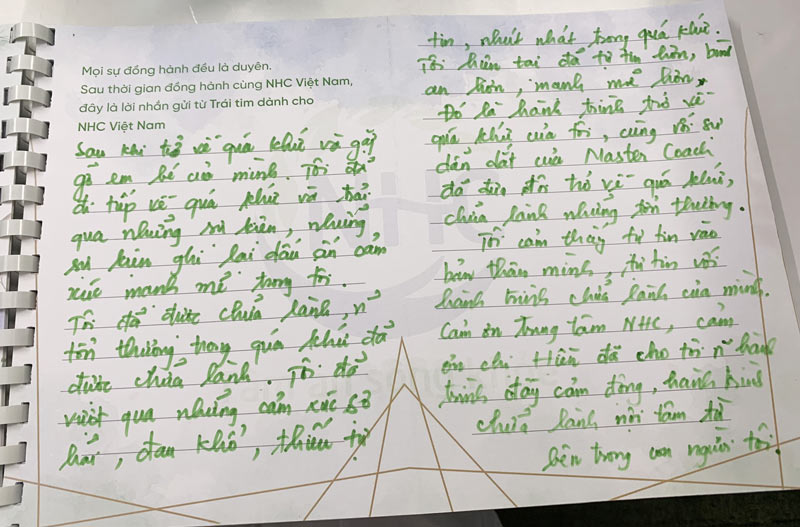 Mọi sự đồng hành đều là duyên.
Sau thời gian đồng hành cùng NHC Việt Nam,
đây là lời nhắn gửi từ Trái tim dành cho
NHC Việt Nam
Sau khi trở về quá khứ và gặp
gỡ em bé của mình. Tôi đã
đi tiếp về quá khứ và trải
qua những sự kiện, những
sự kiện ghi lại dấu ấn cảm
xúc mạnh mẽ trong tôi.
Tôi đã được chữa lành, n~
tổn thương trong quá khứ đã
được chữa lành. Tôi đã
vượt qua những cảm xúc sợ
hãi, đau khổ, thiếu tự
tin, nhút nhát trong quá khứ.
Tôi hiện tại đã tự tin hơn, bình
an hơn, mạnh mẽ hơn,
Đó là hành trình trở về
quá khứ của tôi, cùng với sự
dẫn dắt của Master Coach
đã đưa tôi trở về quá khứ,
chữa lành những tổn thương.
Tôi cảm thấy tự tin vào
bản thân mình, tự tin với
hành trình chữa lành của mình.
Cảm ơn Trung tâm NHC, cảm
ơn chị Hiền đã cho tôi n~ hành
trình đầy cảm động, hành trình
chữa lành nội tâm từ
bên trong con người tôi.
NHC